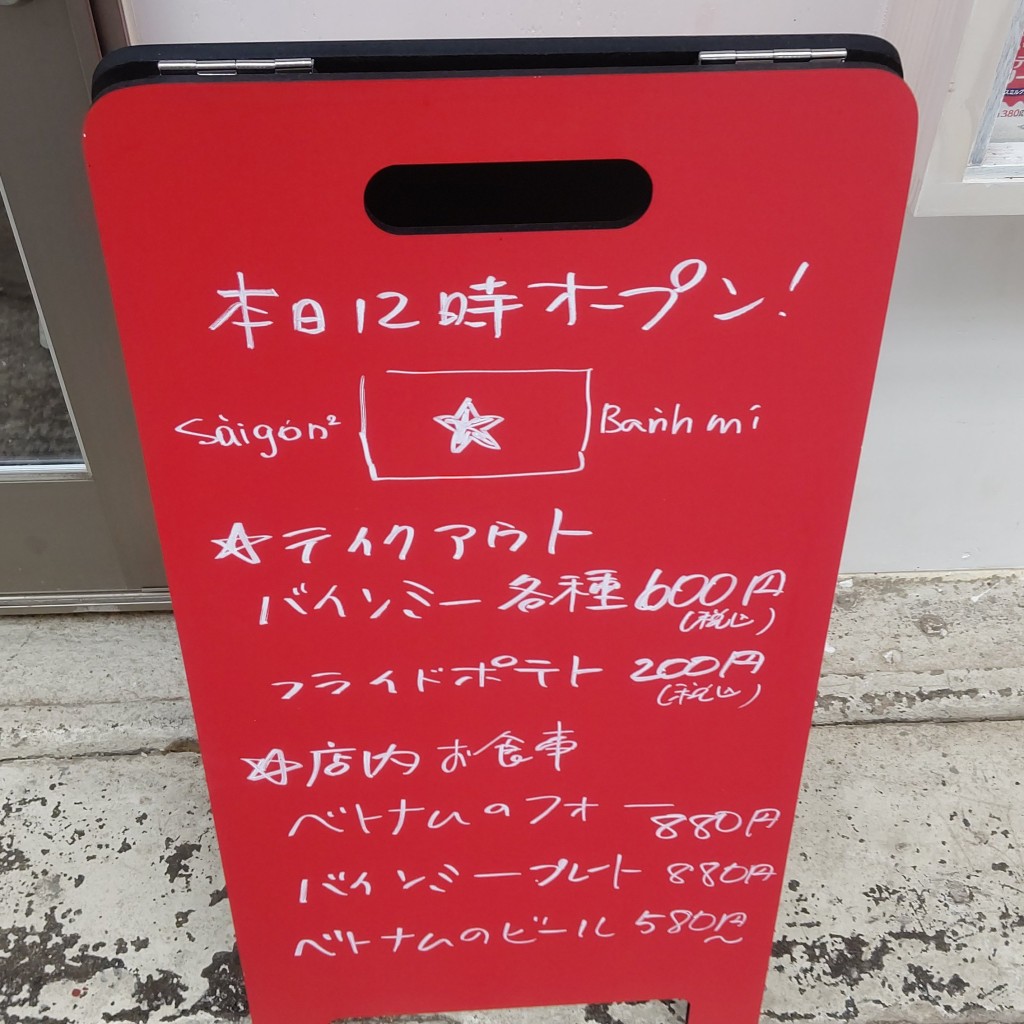 本日12時オープン!
Sàigón² Bành mí
☆テイクアウト
バインミー各種600円
(税込)
フライドポテト 200円
(税込)
☆店内お食事
ベトナムのフォー 880円
バインミープレート 880円
ベトナムのビール 580円〜
380